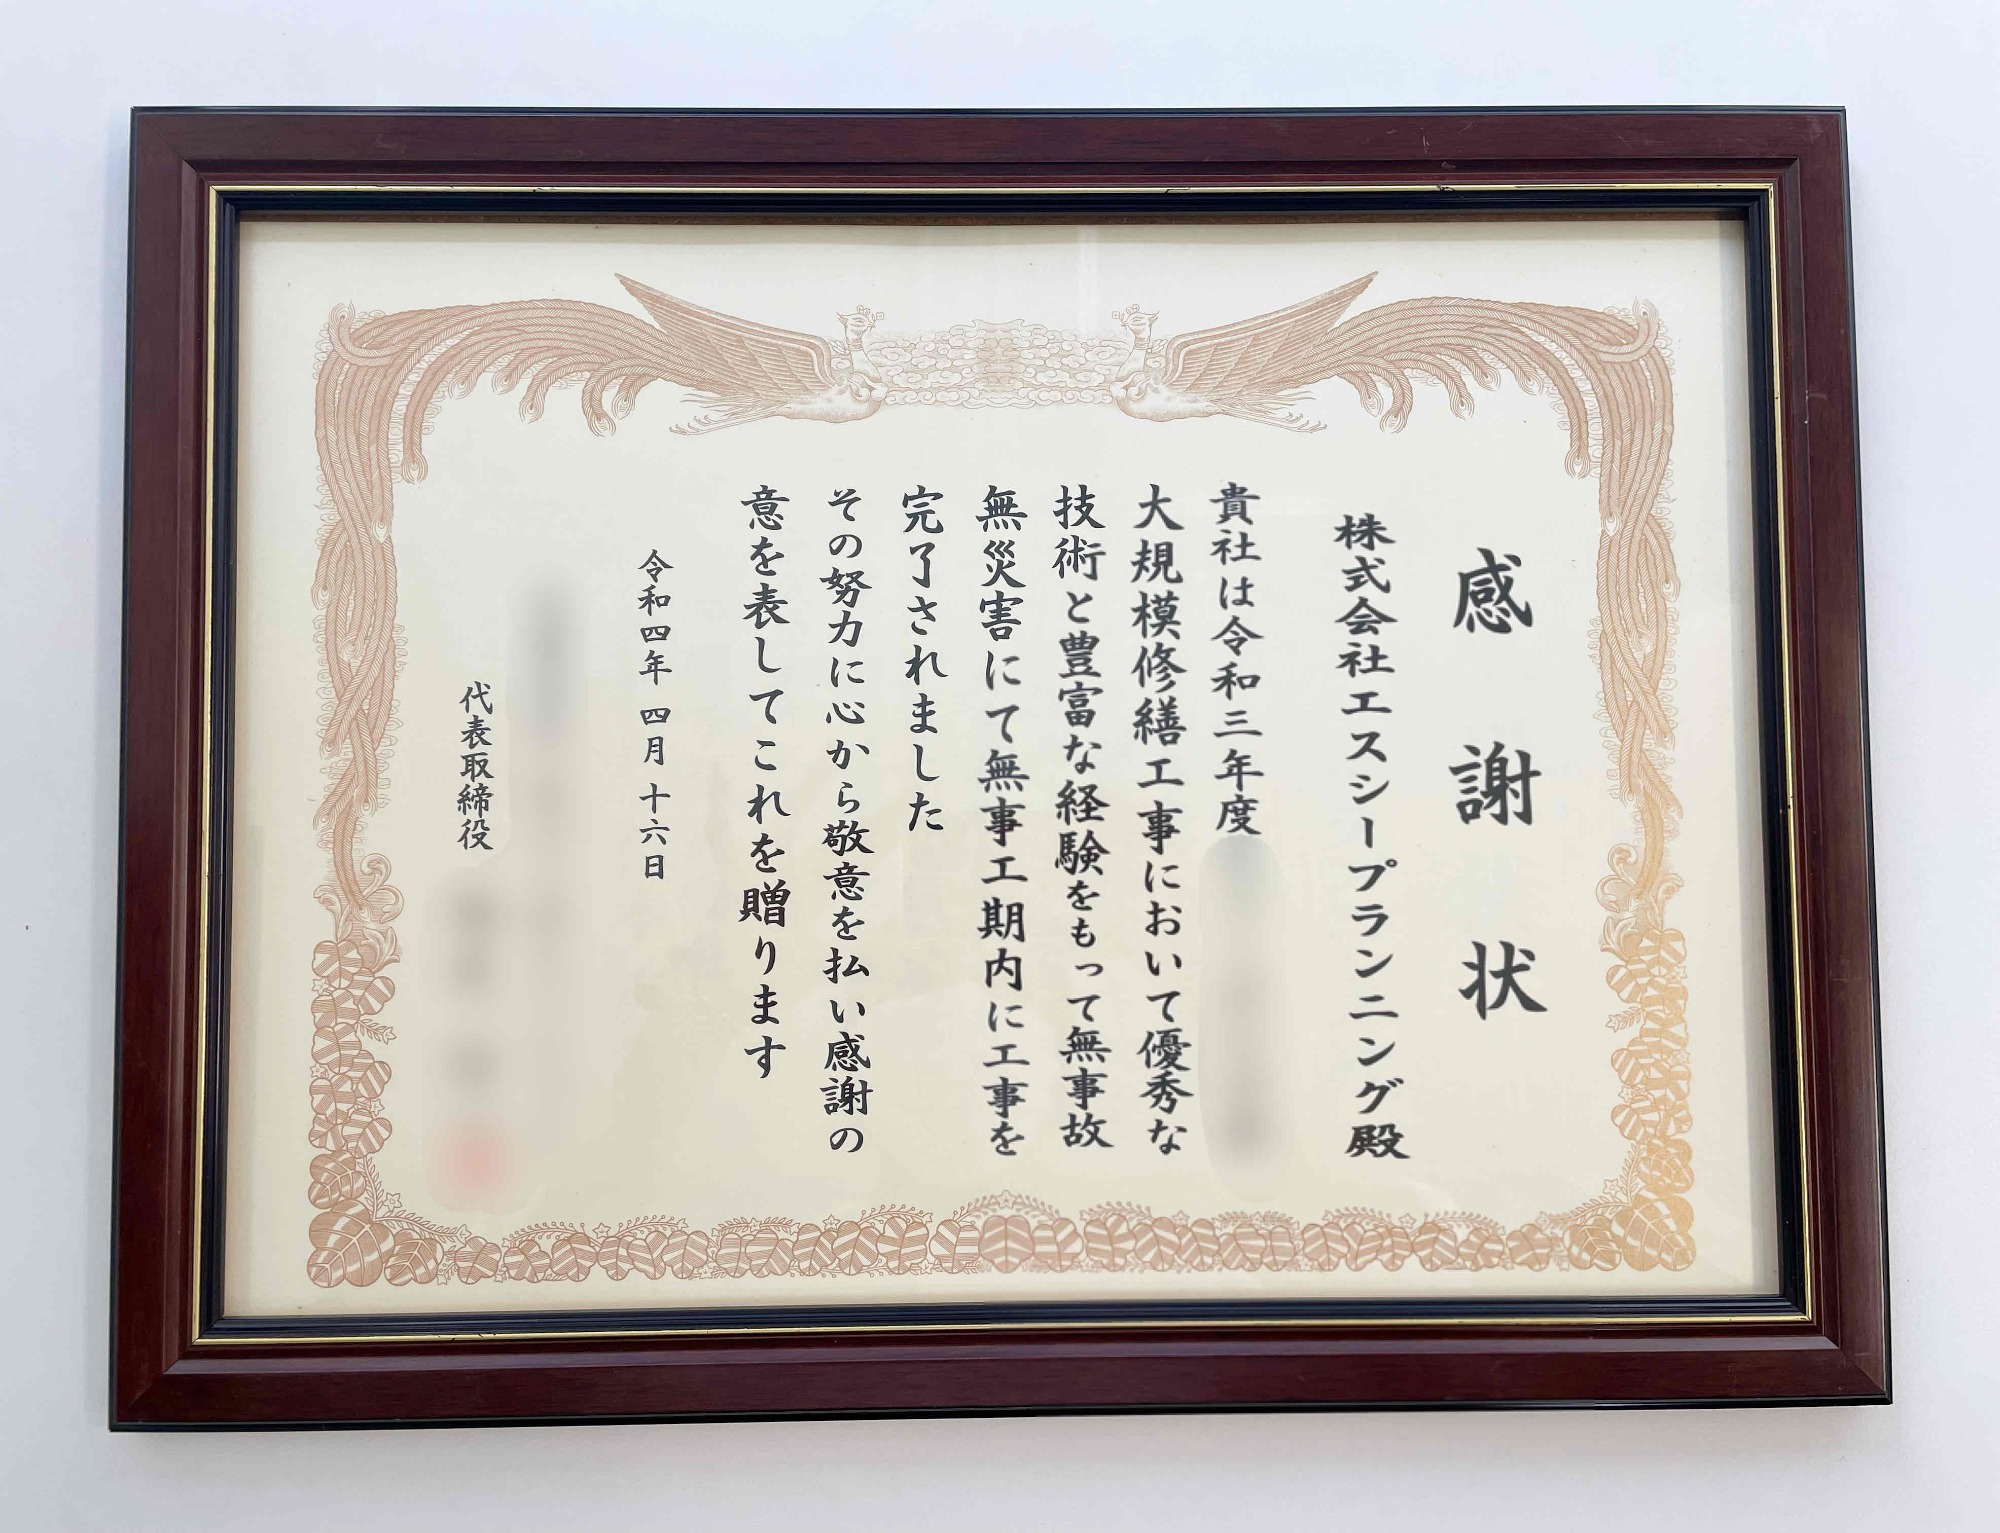 感謝状
株式会社エスシープランニング殿
貴社は令和三年度
大規模修繕工事において優秀な
技術と豊富な経験をもって無事故
無災害にて無事工期内に工事を
完了されました
その努力に心から敬意を払い感謝の
意を表してこれを贈ります
令和四年 四月 十六日
代表取締役